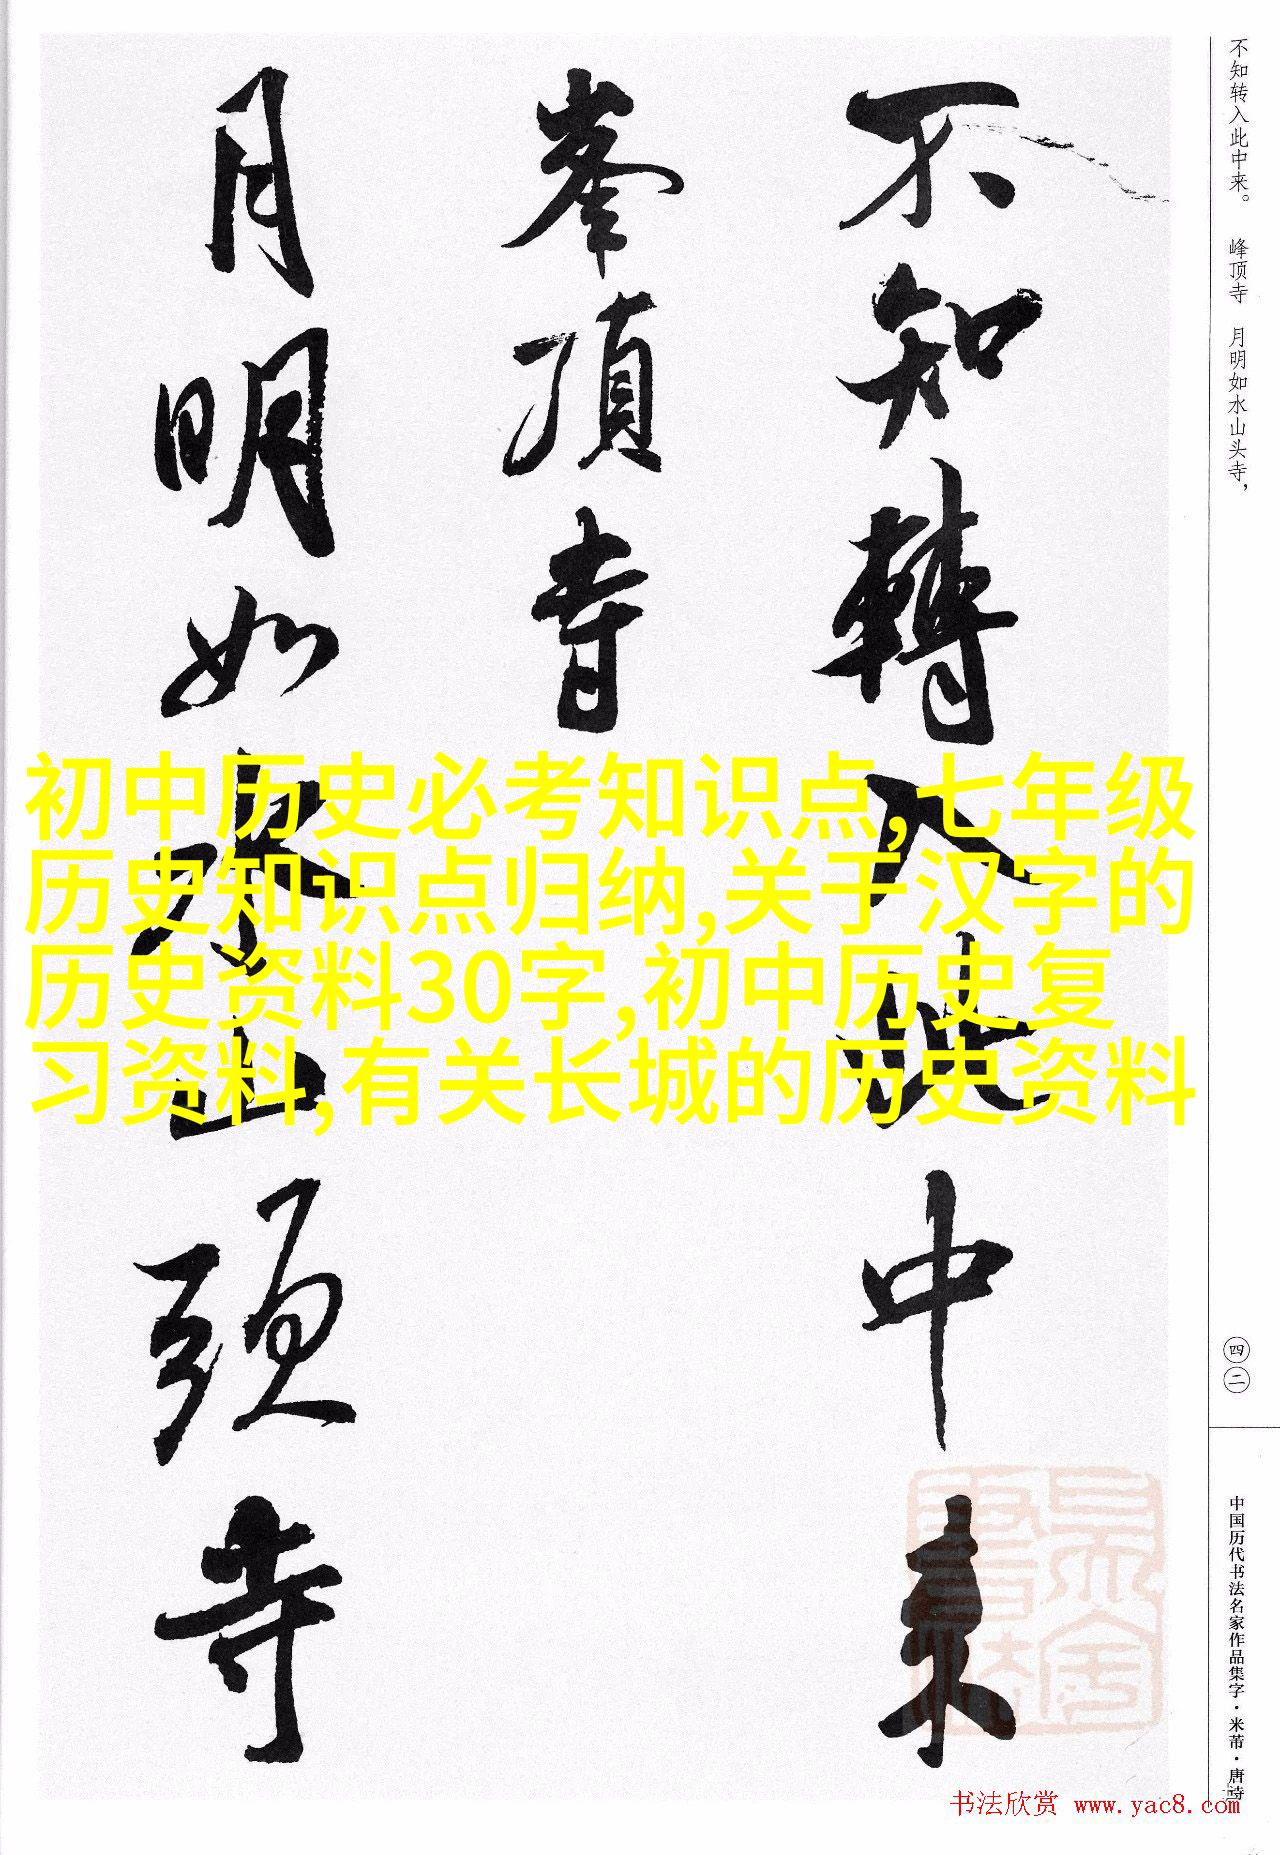 不知轉入此中来
峯頂寺
月明如水山頭寺
不知转入此中来。 峰顶寺 月明如水山头寺，
四二
中国历代书法名家作品集字·米芾·唐诗
初中历史必考知识点,七年级
历史知识点归纳,关于汉字的
历史资料30字,初中历史复
习资料,有关长城的历史资料
书法欣赏 www.yac8.com